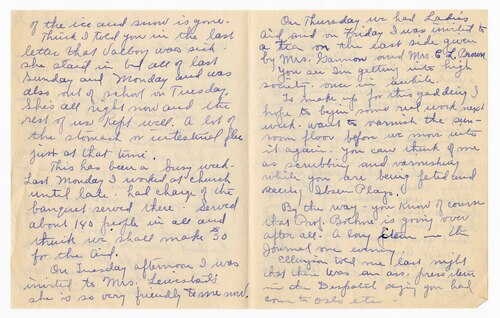 of the ice and snow is gone.
Think I told you in the last
letter that Valborg was sick.
she staid in bed all of last
Sunday and Monday and was
also out of school on Tuesday.
She's all right now and the
rest of us kept well. A lot of
the stomach or intestinal flu
just at that time.
This has been a busy week.
Last Monday I worked at church
until late. had charge of the
banquet served there. served
about 180 people in all and
think we shall make $30
for the Aid.
On Tuesday afternoon I was
invited to Mrs.
she is so very friendly to me now.
On Thursday we had Ladies
Aid and on Friday I was invited to
a tea on the east side given
by Mrs. Gannon and Mrs. E. L. Brown
You see I'm getting into high
society. once in awhile.
To make up for this gadding I
hope to begin some real work next
week. want to varnish the sun-
room floor before we move into
it again. you can think of me
as scrubbing and varnishing
while you are being feted and
seeing Ibsen Plays.
By the way - you know of course
that Prof. Bothne is going over
after all. A long item in the
Journal one evening.
told me last night
that there was an ass. press item
in the Despatch saying you had
come to Oslo etc -